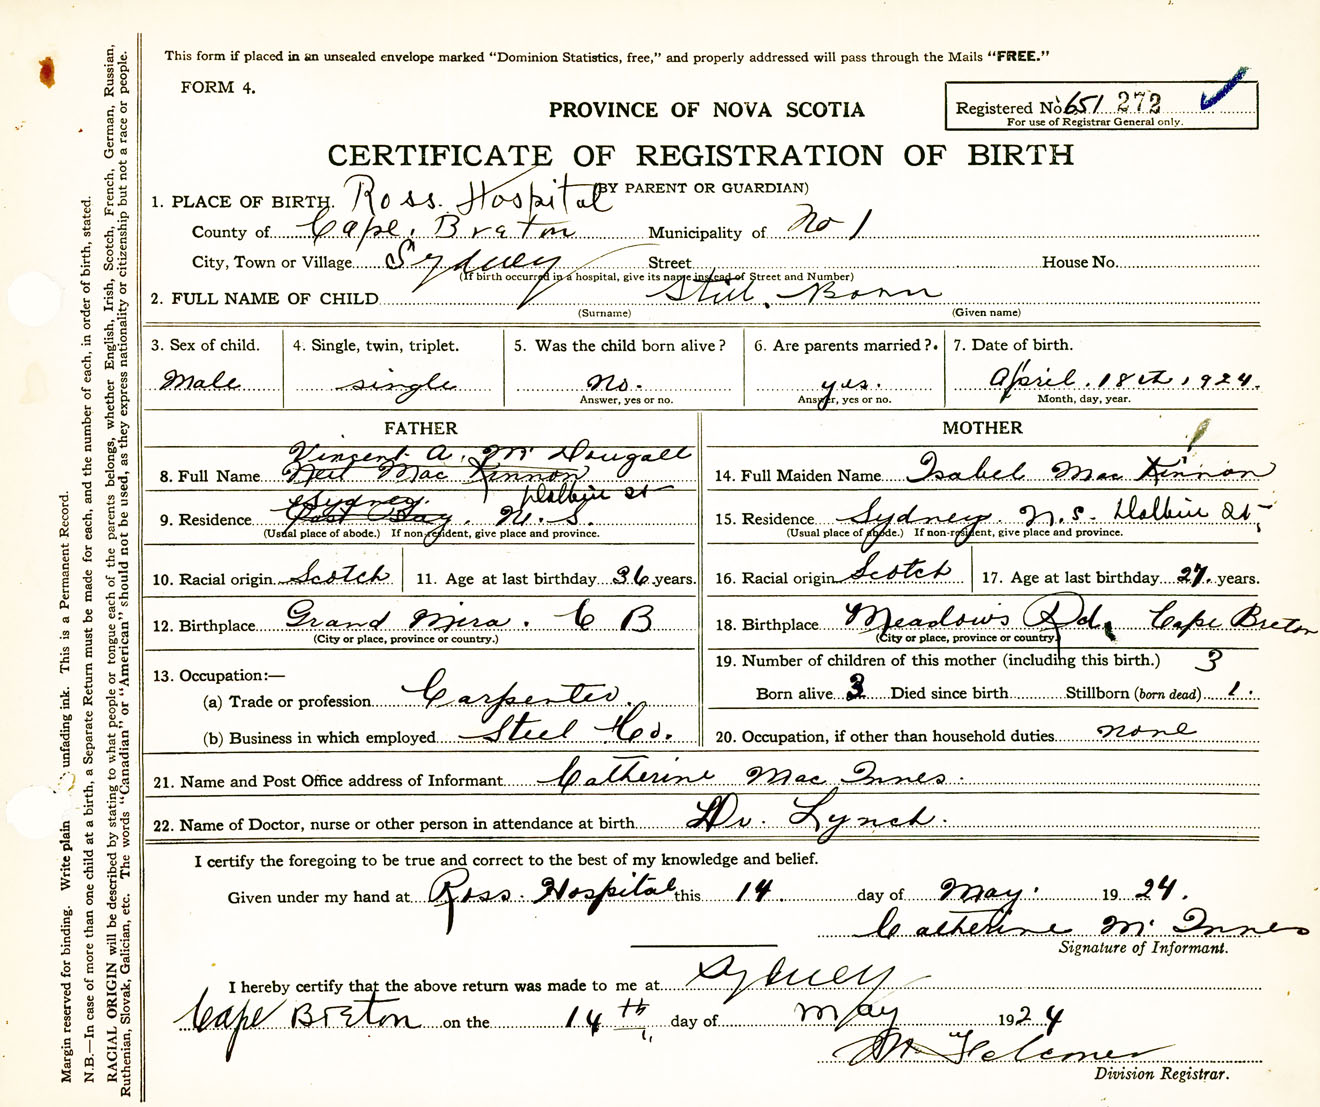 This form if placed in an unsealed envelope marked "Dominion Statistics, free," and properly addressed will pass through the Mails "FREE."
FORM 4.
Registered No. 651 272
For use of Registrar General only.
PROVINCE OF NOVA SCOTIA
CERTIFICATE OF REGISTRATION OF BIRTH
(BY PARENT OR GUARDIAN)
1. PLACE OF BIRTH. Ross. Hospital
County of Cape. Breton Municipality of No 1
City, Town or Village Sydney Street House No.
(If birth occurred in a hospital, give its name instead of Street and Number)
2. FULL NAME OF CHILD Still. Born
(Surname) (Given name)
3. Sex of child. 4. Single, twin, triplet. 5. Was the child born alive? 6. Are parents married? 7. Date of birth.
Male single no. yes. April. 18th, 1924.
Answer, yes or no. Answer, yes or no. Month, day, year.
FATHER MOTHER
Vincent A. Mc Dougall
8. Full Name Neil Mac Kinnon 14. Full Maiden Name Isabel Mac Kinnon
Sydney.
9. Residence East Bay. N. S. 15. Residence Sydney. N.S. St.
(Usual place of abode.) If non-resident, give place and province. (Usual place of abode.) If non-resident, give place and province.
10. Racial origin Scotch 11. Age at last birthday 36 years. 16. Racial origin Scotch 17. Age at last birthday 27. years.
12. Birthplace Grand Mira. C B 18. Birthplace Meadows Rd. Cape Breton
(City or place, province or country.) (City or place, province or country)
13. Occupation:— 19. Number of children of this mother (including this birth.) 3
(a) Trade or profession Carpenter. Born alive 3 Died since birth Stillborn (born dead) 1.
(b) Business in which employed Steel Co. 20. Occupation, if other than household duties none
21. Name and Post Office address of Informant Catherine Mac Innes.
22. Name of Doctor, nurse or other person in attendance at birth Dr. Lynch.
I certify the foregoing to be true and correct to the best of my knowledge and belief.
Given under my hand at Ross. Hospital this 14 day of May. 1924.
Catherine Mc Innes
Signature of Informant.
I hereby certify that the above return was made to me at Sydney
Cape Breton on the 14th day of May 1924
Division Registrar.
Margin reserved for binding. Write plain unfading ink. This is a Permanent Record.
N.B.—In case of more than one child at a birth, a Separate Return must be made for each, and the number of each, in order of birth, stated.
RACIAL ORIGIN will be described by stating to what people or tongue each of the parents belongs, whether English, Irish, Scotch, French, German, Russian,
Ruthenian, Slovak, Galician, etc. The words "Canadian" or "American" should not be used, as they express nationality or citizenship but not a race or people.